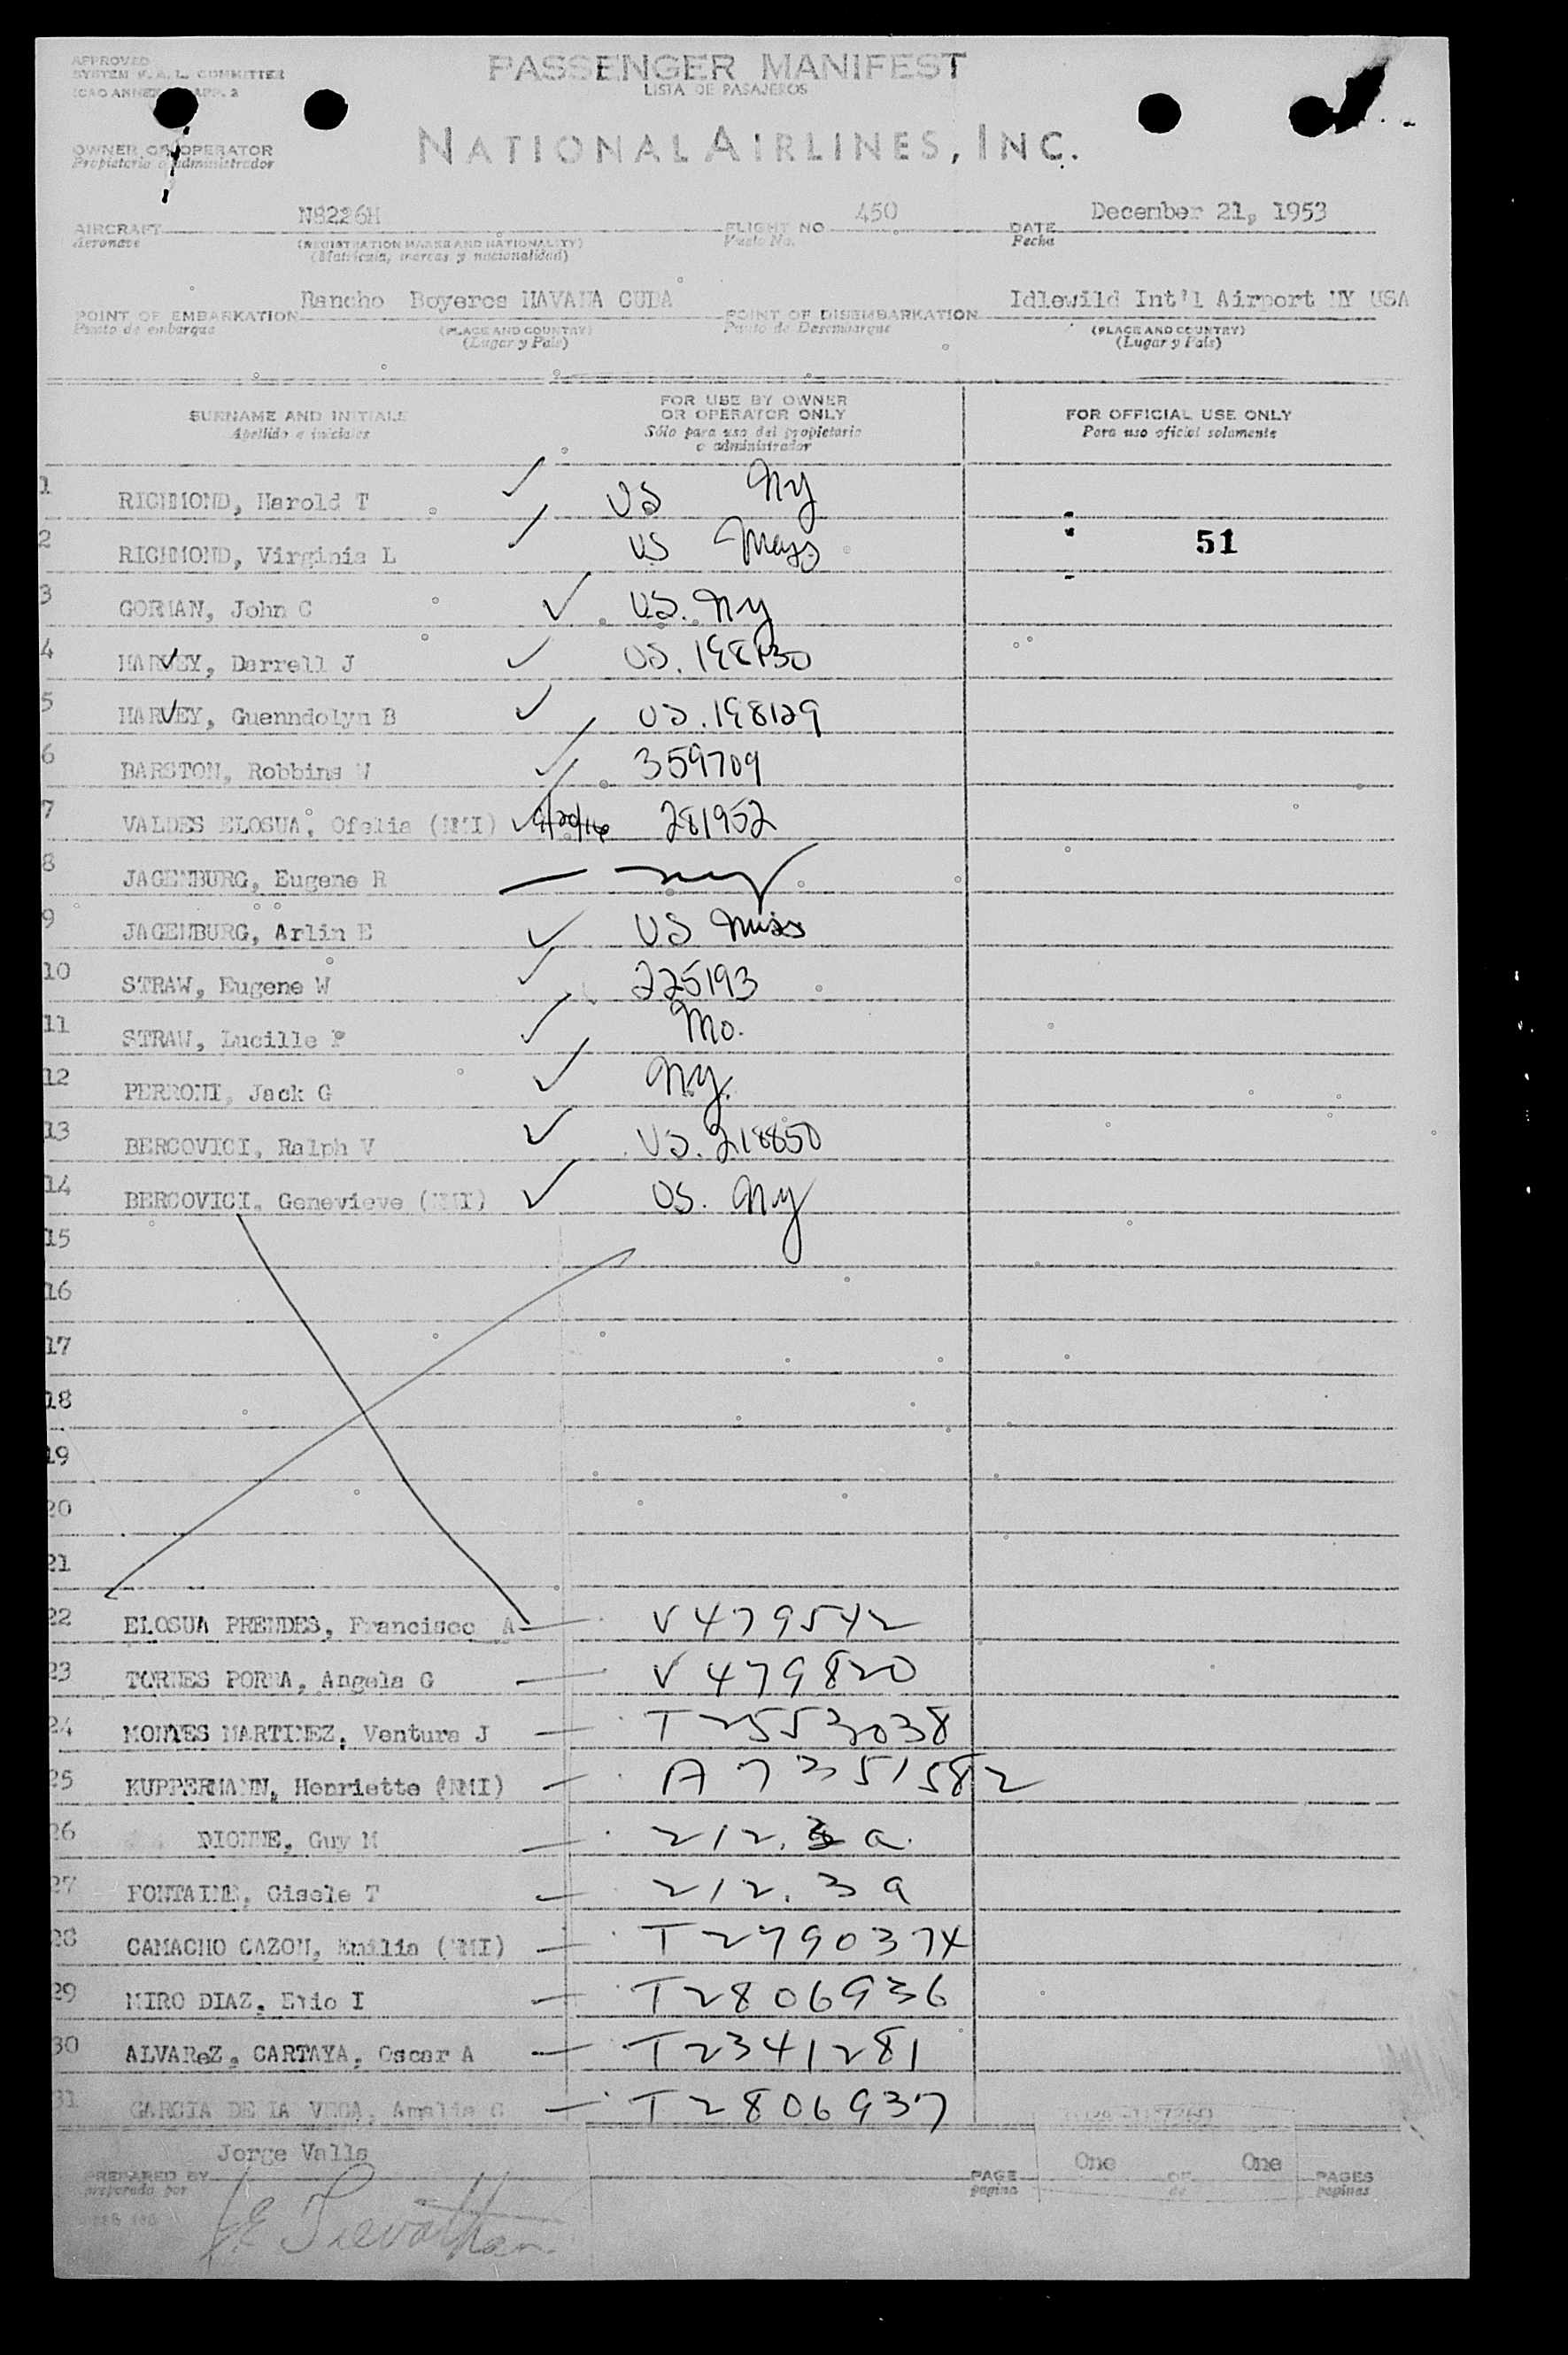 APPROVED
SYSTEM F.A.L. COMMITTEE
ICAO ANNEX APP. 3
PASSENGER MANIFEST
LISTA DE PASAJEROS
OWNER OR OPERATOR
Propietario o administrador
NATIONAL AIRLINES, INC.
AIRCRAFT N8226H FLIGHT NO 450 DATE December 21, 1953
Aeronave (REGISTRATION MARKS AND NATIONALITY) Vuelo No. Fecha
(Matricula, marcas y nacionalidad)
POINT OF EMBARKATION Rancho Boyeros HAVANA CUBA POINT OF DISEMBARKATION Idlewild Int'l Airport NY USA
Punto de embarque (PLACE AND COUNTRY) Punto de Desembarque (PLACE AND COUNTRY)
(Lugar y Pais) (Lugar y Pais)
SURNAME AND INITIALS FOR USE BY OWNER OR OPERATOR ONLY FOR OFFICIAL USE ONLY
Apellido e iniciales Sólo para uso del propietario o administrador Para uso oficial solamente
1 RICHMOND, Harold T ✓ US NY
2 RICHMOND, Virginia L ✓ US Mass 51
3 GORMAN, John C ✓ US. NY
4 HARVEY, Darrell J ✓ US. 198130
5 HARVEY, Guenndolyn B ✓ US. 198129
6 BARSTON, Robbins W ✓ 359709
7 VALDES ELOSUA, Ofelia (NMI) ✓ 281952
8 JAGENBURG, Eugene R — NY
9 JAGENBURG, Arlin E ✓ US Miss
10 STRAW, Eugene W ✓ 225193
11 STRAW, Lucille P ✓ Mo.
12 PERRONI, Jack G ✓ NY.
13 BERCOVICI, Ralph V ✓ US. 218850
14 BERCOVICI, Genevieve (NMI) ✓ US. NY
15
16
17
18
19
20
21
22 ELOSUA PRENDES, Francisco A — V479542
23 TORRES PORRA, Angela G — V479820
24 MONTES MARTINEZ, Ventura J — T2553038
25 KUPPERMANN, Henriette (NMI) — A7351582
26 DIONNE, Guy M — 212.3 a.
27 FONTAINE, Gisele T — 212.3 a
28 CAMACHO CAZON, Emilia (NMI) — T2790374
29 MIRO DIAZ, Evio I — T2806936
30 ALVAReZ, CARTAYA, Oscar A — T2341281
31 GARCIA DE LA VEGA, Amalia C — T2806937
PREPARED BY Jorge Valls PAGE One OF One PAGES
preparado por pagina de paginas